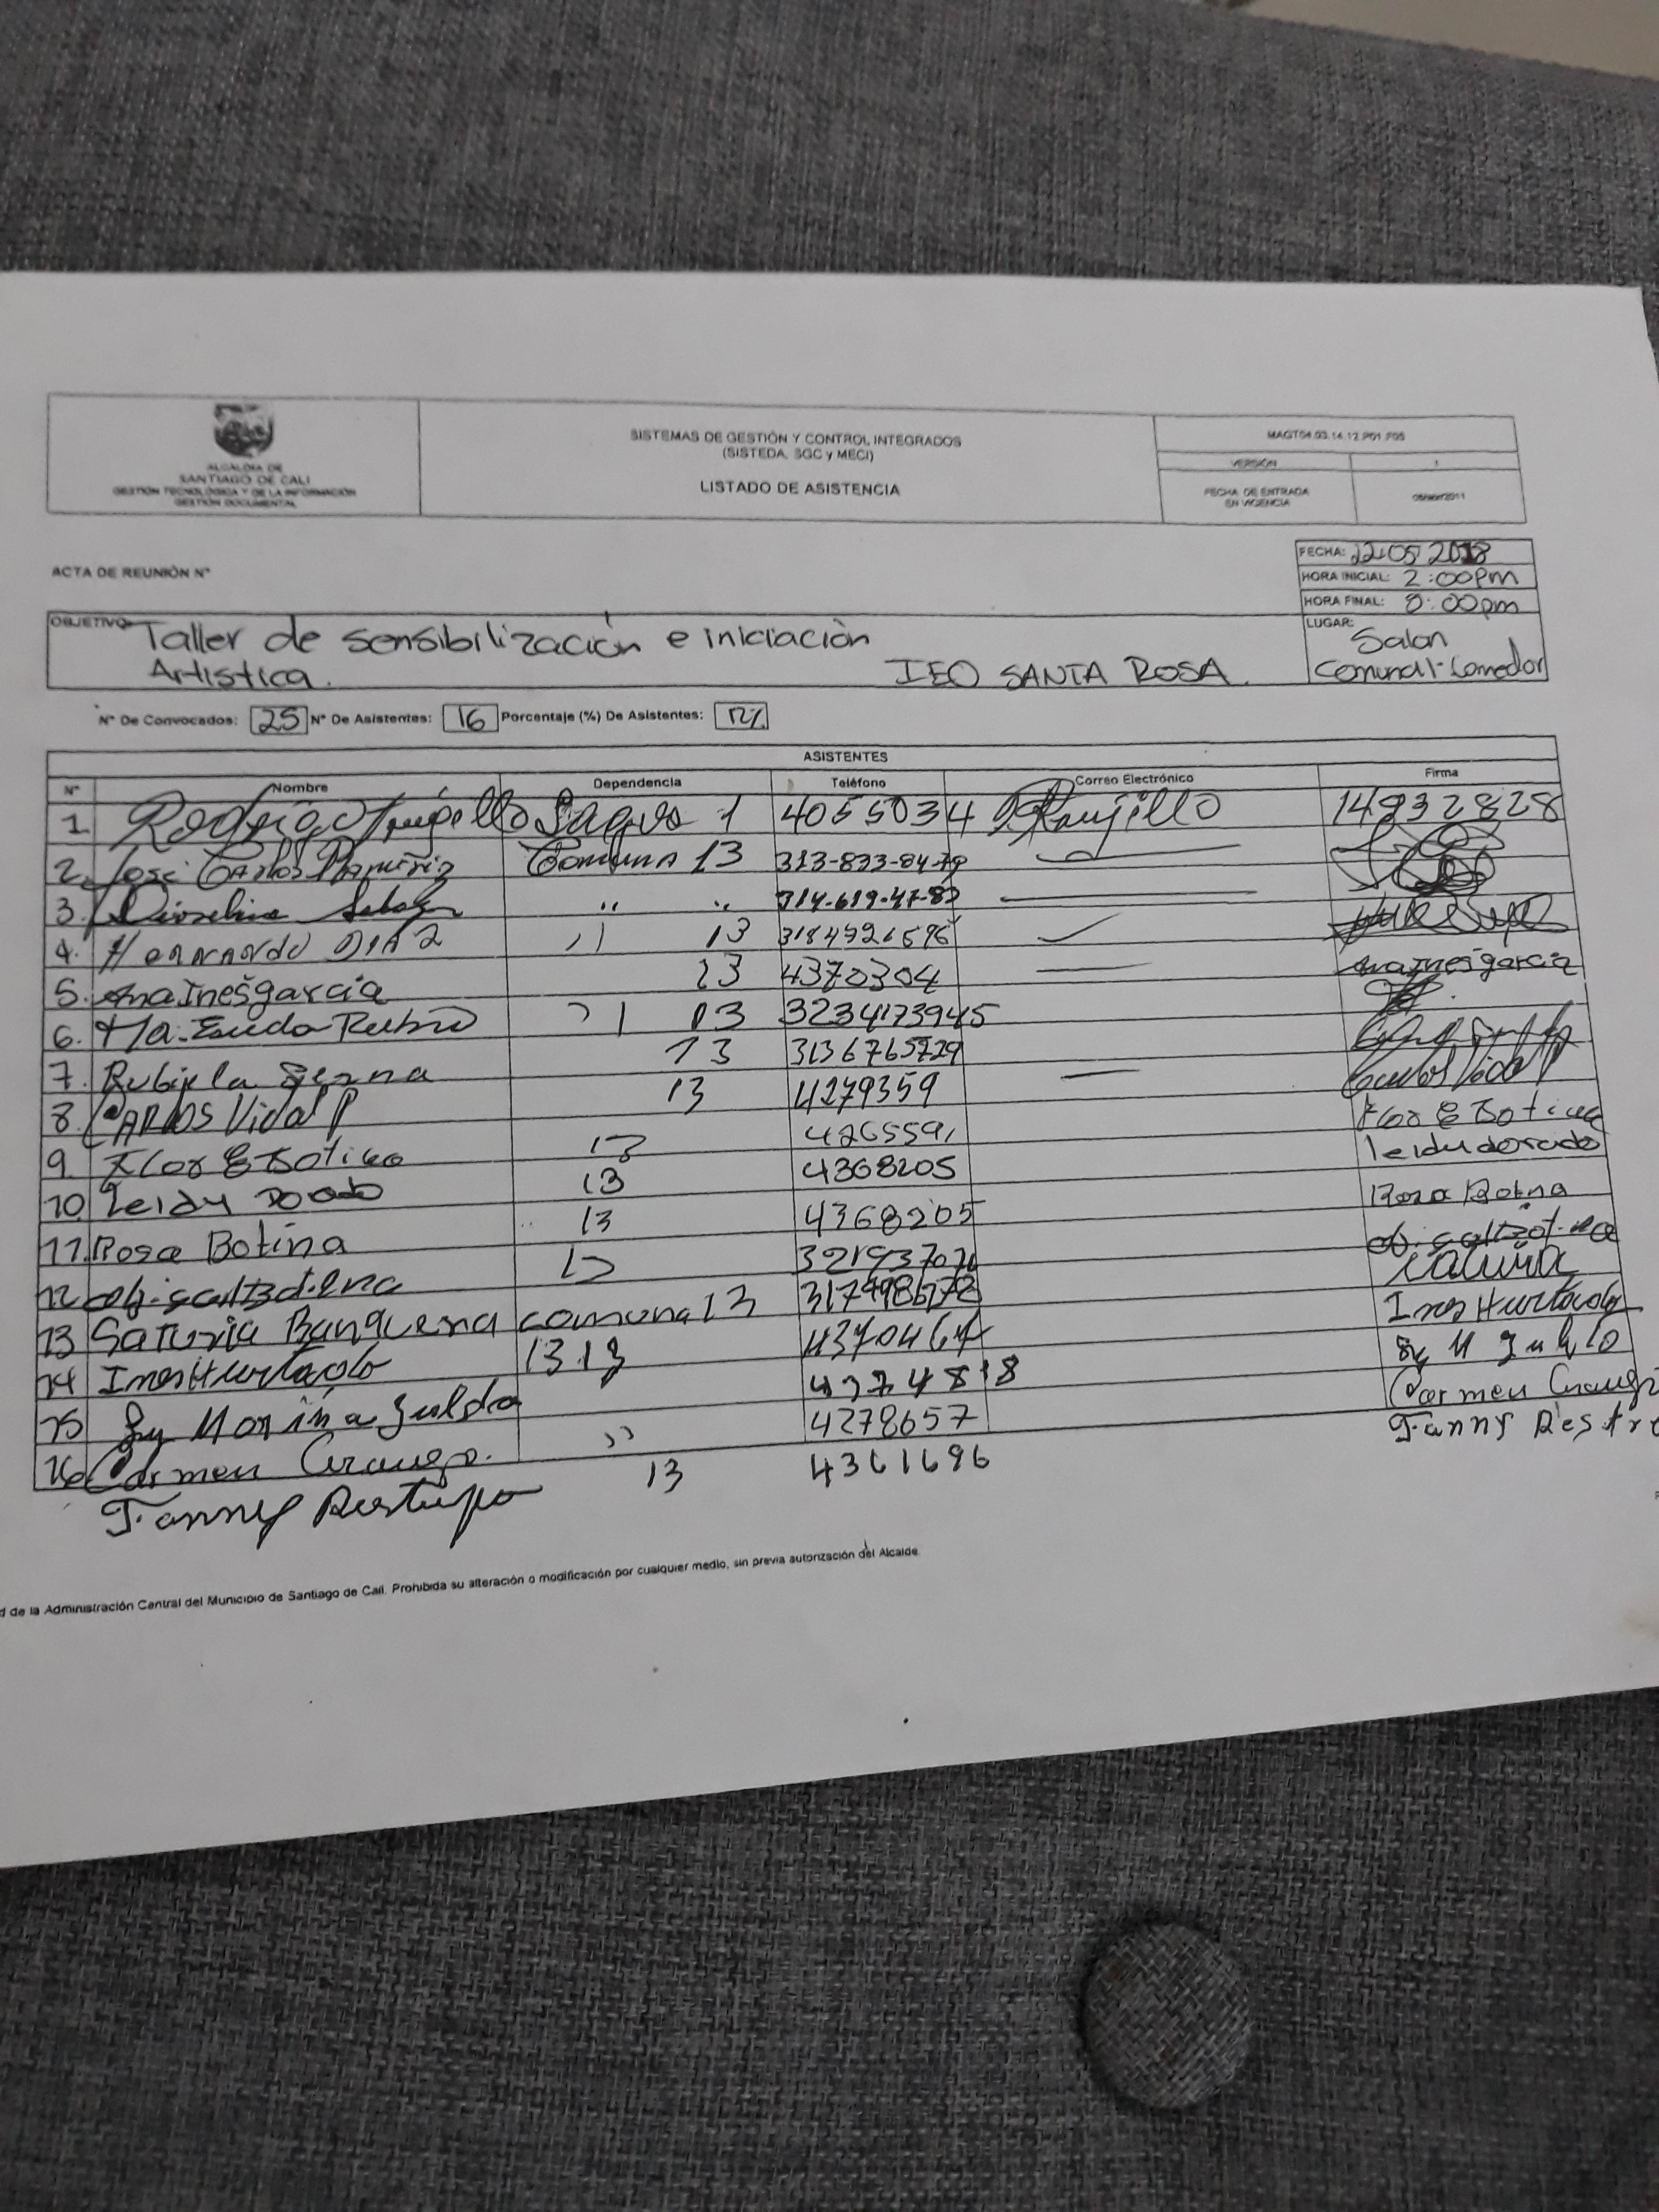 ALCALDÍA DE
SANTIAGO DE CALI
GESTIÓN TECNOLÓGICA Y DE LA INFORMACIÓN
GESTIÓN DOCUMENTAL
SISTEMAS DE GESTIÓN Y CONTROL INTEGRADOS
(SISTEDA, SGC y MECI)
LISTADO DE ASISTENCIA
MAGT04.03.14.12.P01.F05
VERSIÓN 1
FECHA DE ENTRADA
EN VIGENCIA
ACTA DE REUNIÓN N°
FECHA: 22:05 2018
HORA INICIAL: 2:00pm
HORA FINAL: 8:00pm
LUGAR: Salon
Comunal-Comedor
OBJETIVO: Taller de sensibilización e iniciación
Artistica. IEO SANTA ROSA.
N° De Convocados: 25 N° De Asistentes: 16 Porcentaje (%) De Asistentes: 12%
ASISTENTES
N° Nombre Dependencia Teléfono Correo Electrónico Firma
1 Rodrigo Trujillo 1 4055034 RTrujillo 14932828
2. José Carlos Ramírez Comuna 13 313-833-84-79
3. 314-619-47-83
4. Hernando DIAZ 11 13 3184926596
5. Ana Inés garcia 13 4370304 Ana Inés garcia
6. Ma. Rubio 11 13 3234173945
7. Rubiela Serna 13 3136765729
8. CARLOS Vidal P 13 4279359 Carlos Vidal P
9. Flor E Botina 13 4265591 Flor E Botina
10. Leidy Dorado 13 4368205 leidy dorado
11. Rosa Botina 13 4368205 Rosa Botina
12 13
13 Saturia Banguera comuna 13
14 Ines Hurtado 13 13 4370467 Ines Hurtado
15 4374818
16 Carmen 11 4278657 Carmen
Fanny Restrepo 13 4361696 Fanny Restre
d de la Administración Central del Municipio de Santiago de Cali. Prohibida su alteración o modificación por cualquier medio, sin previa autorización del Alcalde.